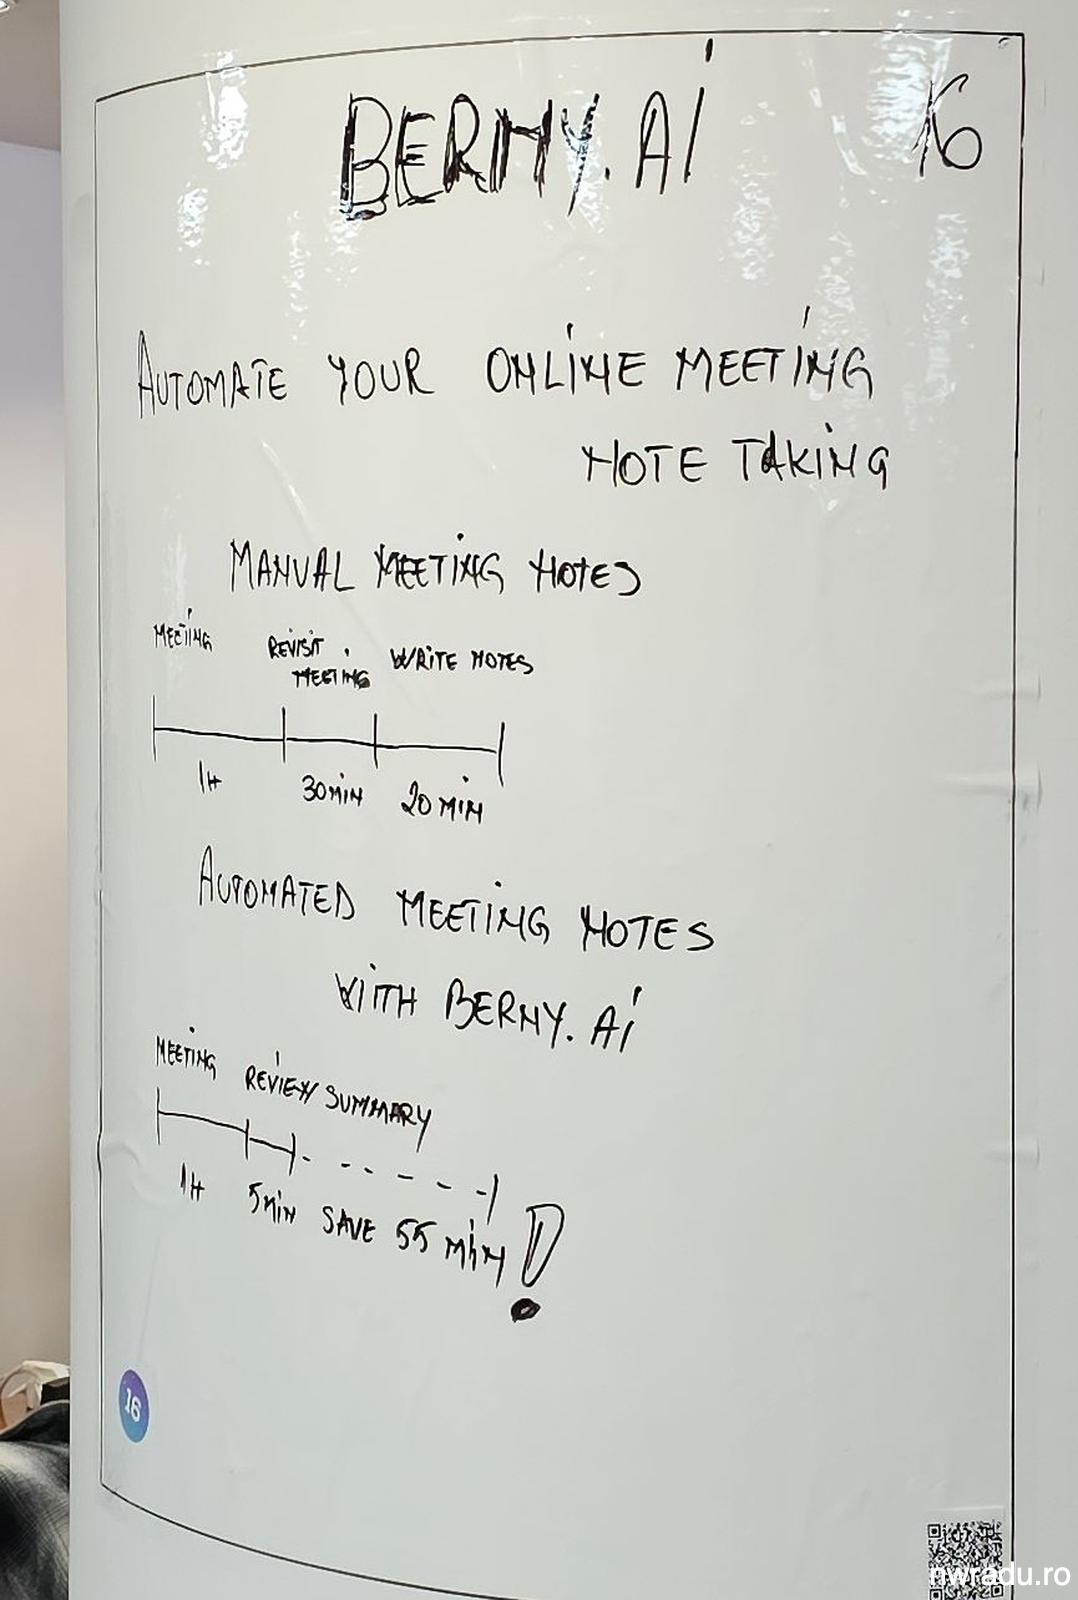 BERNY.Ai
16
AUTOMATE YOUR ONLiNE MEETiNG
NOTE TAKiNG
MANUAL MEETiNG NOTES
MEETiNG REViSiT MEETiNG WRiTE NOTES
1H 30MiN 20MiN
AUTOMATED MEETiNG NOTES
WiTH BERNY.Ai
MEETiNG REViEW SUMMARY
1H 5MiN SAVE 55 MiN!
16
nwradu.ro